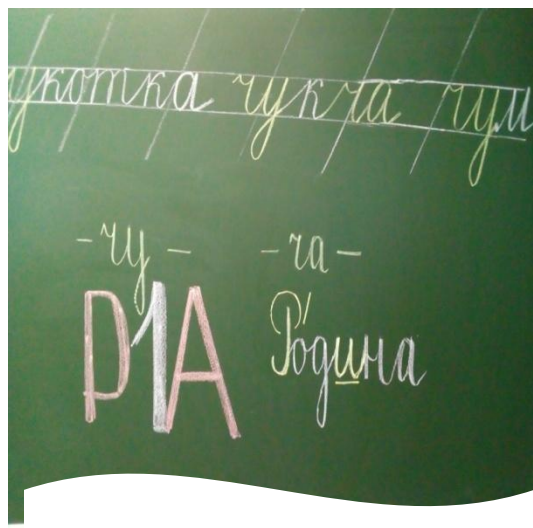 укотка чукча чум
-чу- -ча-
Р1А Ро́дина